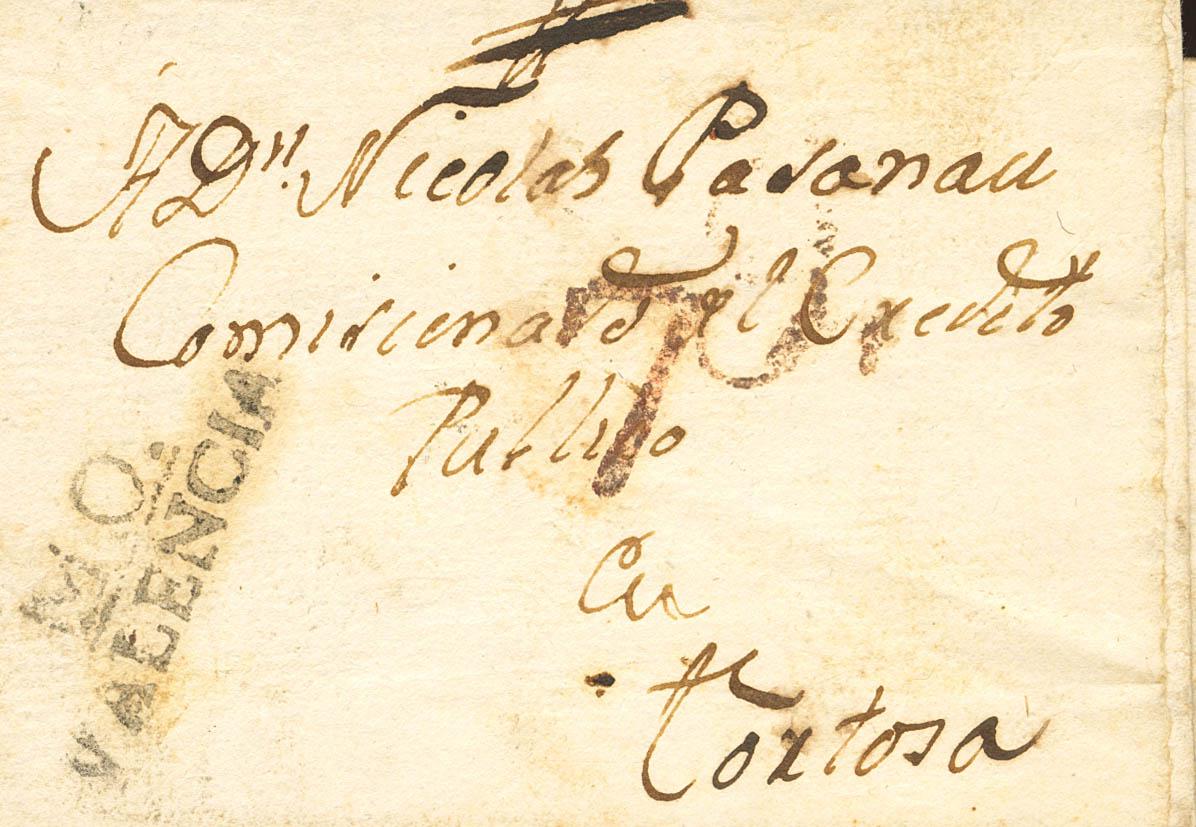 A Dn. Nicolas Pasanau
Comisionado del Credito
Publico
en
Tortosa
M.O.
VALENCIA
7